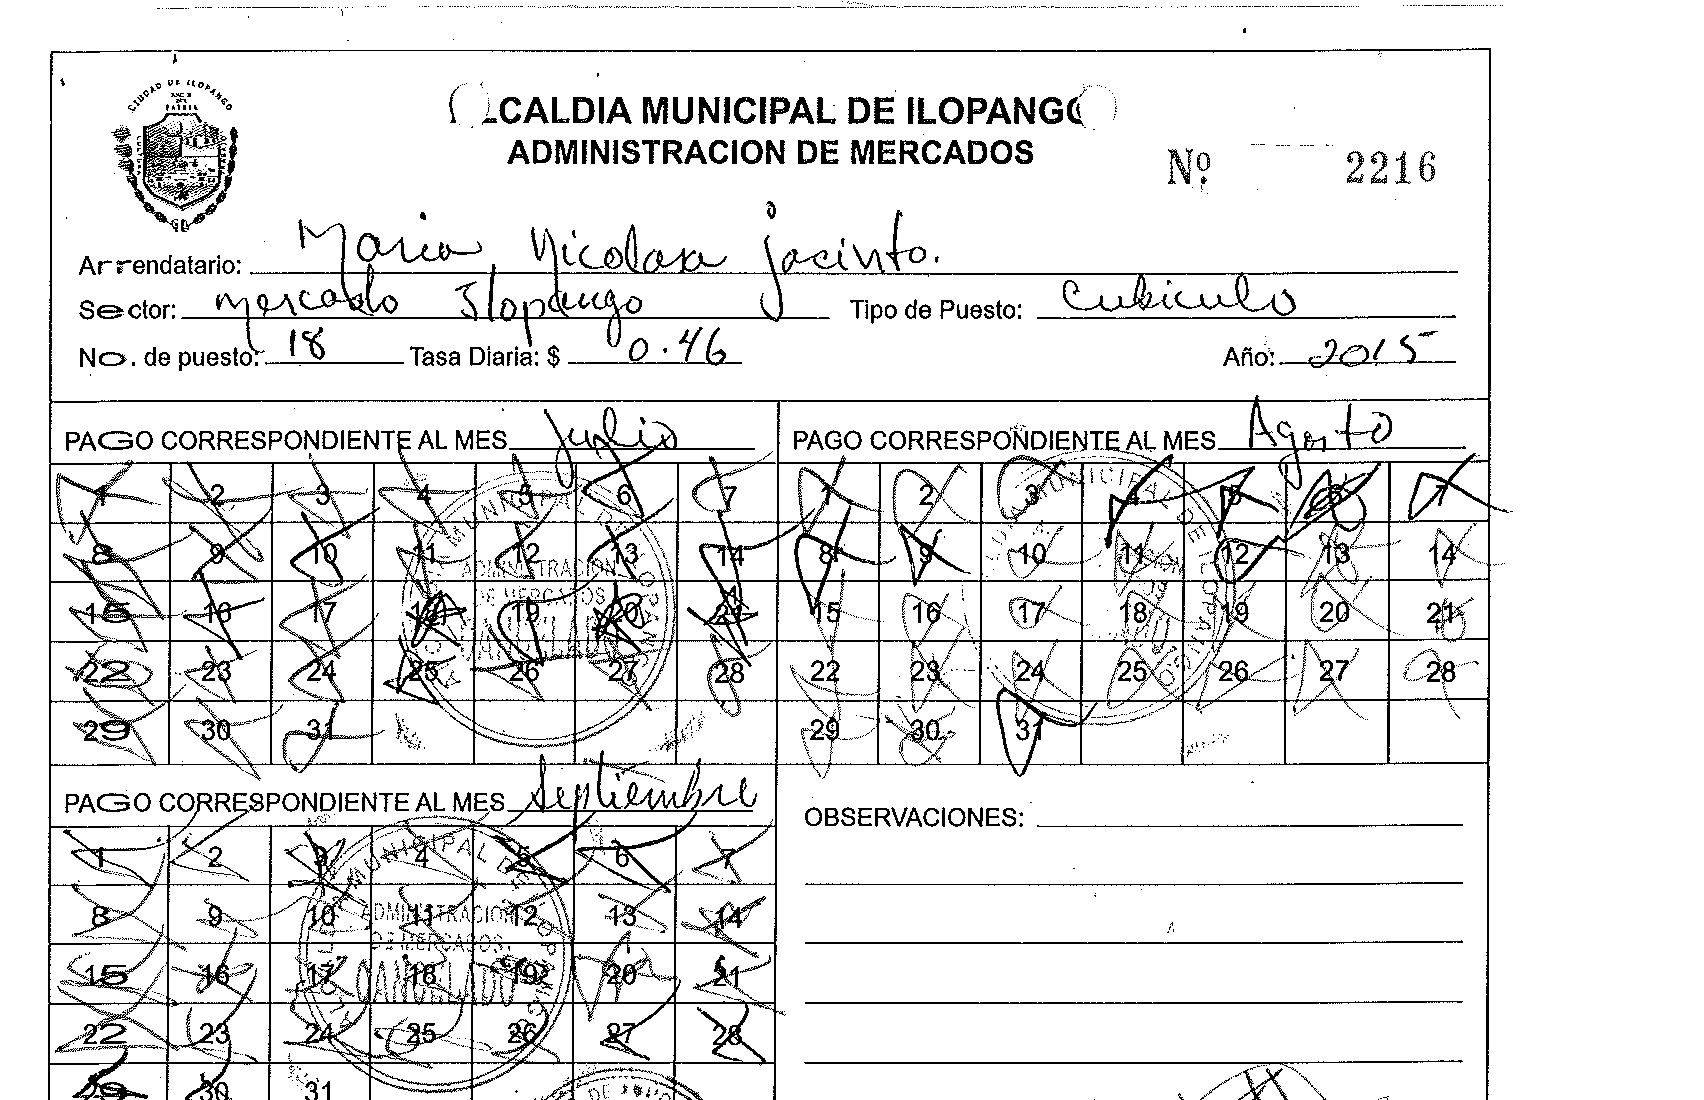 CIUDAD DE ILOPANGO
PATRIA
LCALDIA MUNICIPAL DE ILOPANGO
ADMINISTRACION DE MERCADOS
Nº 2216
Arrendatario: Maria Nicolasa Jacinto.
Sector: Mercado Ilopango Tipo de Puesto: Cubiculo
No. de puesto: 18 Tasa Diaria: $ 0.46 Año: 2015
PAGO CORRESPONDIENTE AL MES Julio
1 2 3 4 5 6 7
8 9 10 11 12 13 14
15 16 17 18 19 20 21
22 23 24 25 26 27 28
29 30 31
MUNICIPAL DE ILOPANGO
ADMINISTRACION
DE MERCADOS
CANCELADO
PAGO CORRESPONDIENTE AL MES Agosto
1 2 3 4 5 6 7
8 9 10 11 12 13 14
15 16 17 18 19 20 21
22 23 24 25 26 27 28
29 30 31
MUNICIPAL DE ILOPANGO
PAGO CORRESPONDIENTE AL MES Septiembre
1 2 3 4 5 6 7
8 9 10 11 12 13 14
15 16 17 18 19 20 21
22 23 24 25 26 27 28
29 30 31
MUNICIPAL DE ILOPANGO
ADMINISTRACION
DE MERCADOS
CANCELADO
OBSERVACIONES: